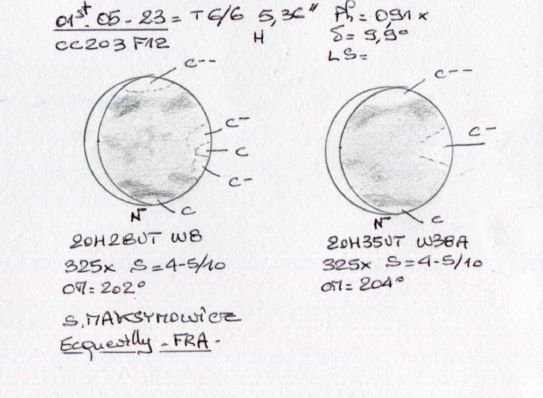 01st. 05 - 23 = T 6/6 5,36" Ph = 0,91 x
CC203 F12 H δ = 9,9°
LS =
C--
C--
C-
C-
C
C-
N C
N C
20H28UT W8
20H35UT W38A
325x S=4-5/10
325x S=4-5/10
ω = 202°
ω = 204°
S. MAKSYMOWICZ
Ecquevilly - FRA -